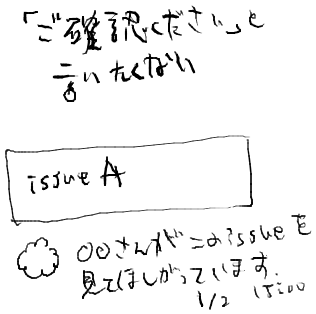 「ご確認ください」と
言いたくない
issue A
○○さんがこのissueを
見てほしがっています.
1/2 15:00